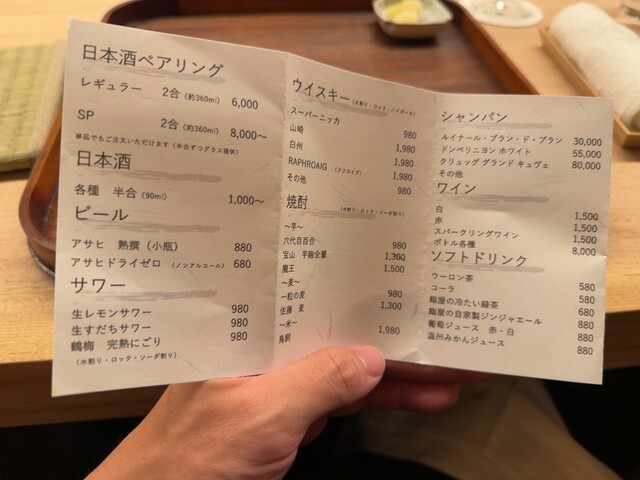 日本酒ペアリング
レギュラー 2合 (約360ml) 6,000
SP 2合 (約360ml) 8,000〜
単品でもご注文いただけます (半合ずつグラス提供)
日本酒
各種 半合 (90ml) 1,000〜
ビール
アサヒ 熟撰 (小瓶) 880
アサヒドライゼロ (ノンアルコール) 680
サワー
生レモンサワー 980
生すだちサワー 980
鶴梅 完熟にごり 980
(水割り・ロック・ソーダ割り)
ウイスキー (水割り・ロック・ハイボール)
スーパーニッカ 980
山崎 1,980
白州 1,980
RAPHROAIG (ラフロイグ) 1,980
その他 980
焼酎 (水割り・ロック・ソーダ割り)
〜芋〜
六代目百合 980
宝山 芋麹全量 1,300
魔王 1,500
〜麦〜
一粒の麦 980
佐藤 麦 1,300
〜米〜
鳥飼 1,980
シャンパン
ルイナール・ブラン・ド・ブラン 30,000
ドンペリニヨン ホワイト 55,000
クリュッグ グランド キュヴェ 80,000
その他
ワイン
白 1,500
赤 1,500
スパークリングワイン 1,500
ボトル各種 8,000
ソフトドリンク
ウーロン茶 580
コーラ 580
鮨屋の冷たい緑茶 680
鮨屋の自家製ジンジャエール 880
葡萄ジュース 赤・白 880
温州みかんジュース 880